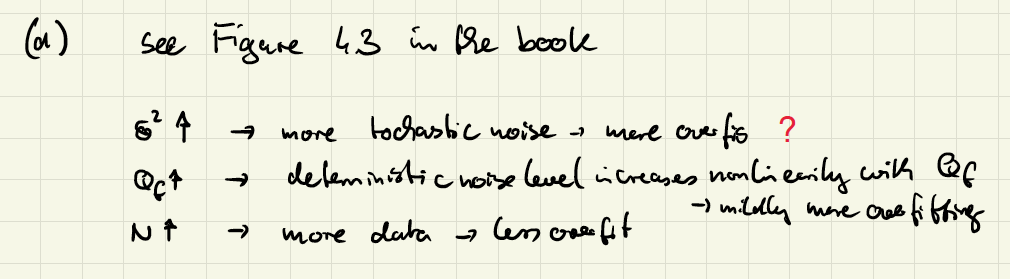 (d) see Figure 4.3 in the book
σ² ↑ → more tochastic noise → more overfit ?
Q_f ↑ → deterministic noise level increases nonlinearily with Q_f
→ mildly more overfitting
N ↑ → more data → less overfit